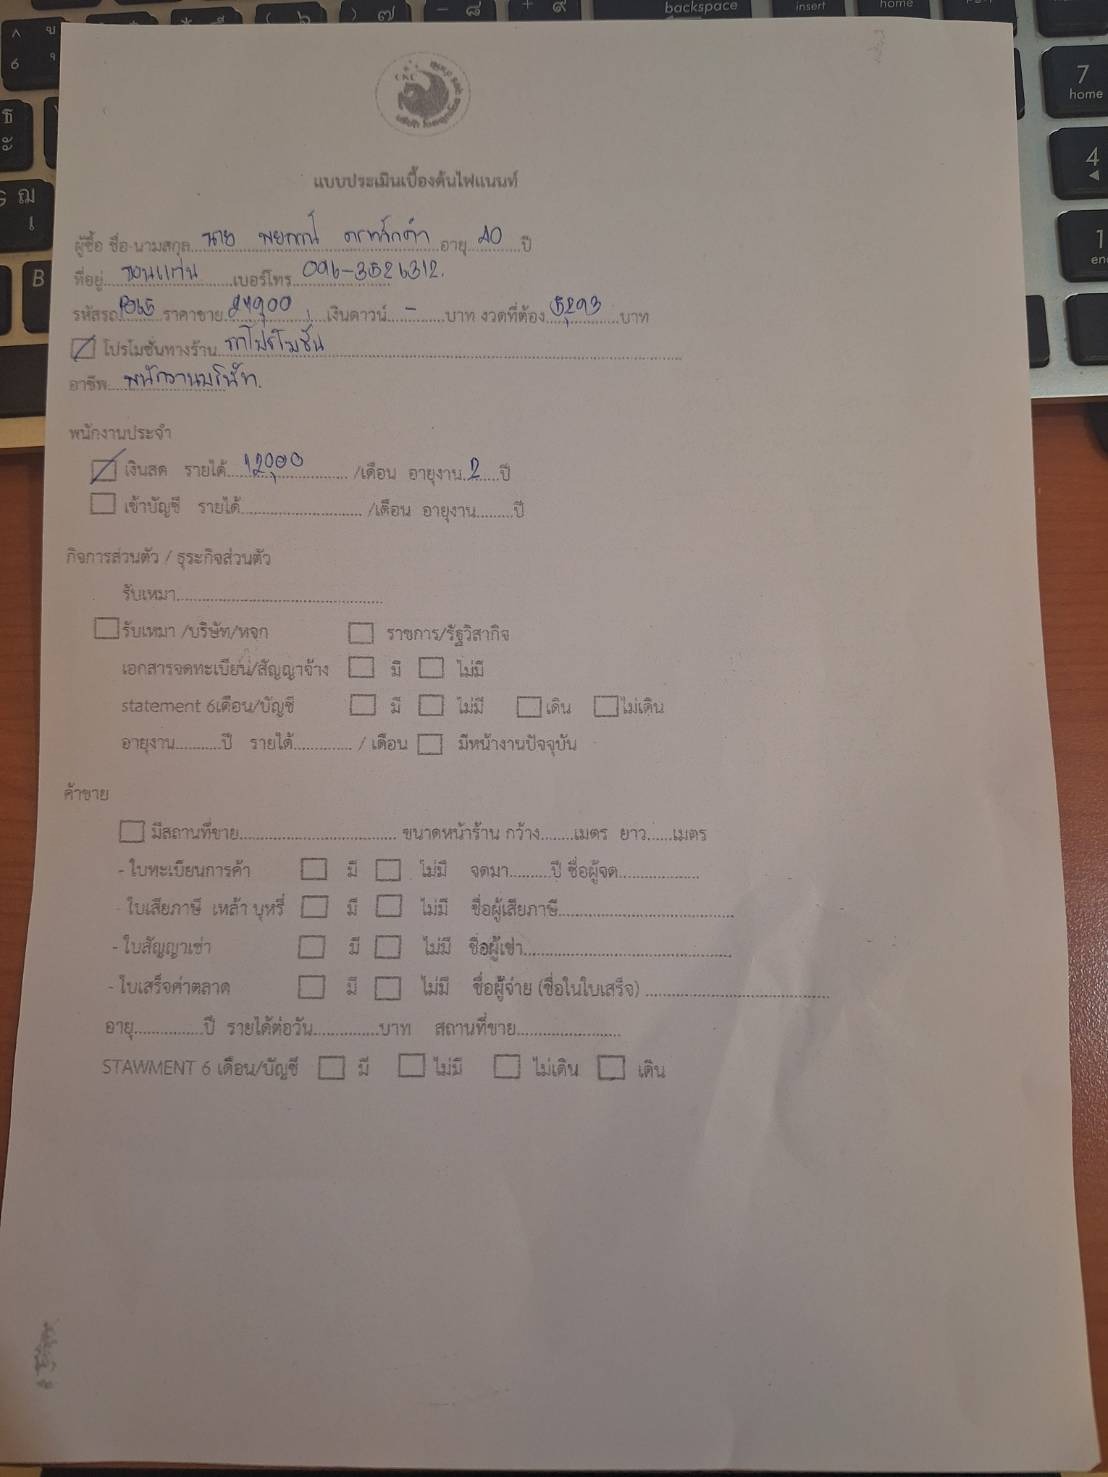 แบบประเมินเบื้องต้นไฟแนนท์
ผู้ซื้อ ชื่อ-นามสกุล นาย อายุ 40 ปี
ที่อยู่ ขอนแก่น เบอร์โทร 096-3526312.
รหัสรถ P065 ราคาขาย เงินดาวน์ - บาท งวดที่ต้อง 5293 บาท
โปรโมชั่นทางร้าน
อาชีพ พนักงานบริษัท.
พนักงานประจำ
เงินสด รายได้ 12,000 /เดือน อายุงาน 2 ปี
เข้าบัญชี รายได้ /เดือน อายุงาน ปี
กิจการส่วนตัว / ธุระกิจส่วนตัว
รับเหมา
รับเหมา /บริษัท/หจก ราชการ/รัฐวิสากิจ
เอกสารจดทะเบียน/สัญญาจ้าง มี ไม่มี
statement 6เดือน/บัญชี มี ไม่มี เดิน ไม่เดิน
อายุงาน ปี รายได้ / เดือน มีหน้างานปัจจุบัน
ค้าขาย
มีสถานที่ขาย ขนาดหน้าร้าน กว้าง เมตร ยาว เมตร
- ใบทะเบียนการค้า มี ไม่มี จดมา ปี ชื่อผู้จด
- ใบเสียภาษี เหล้า บุหรี่ มี ไม่มี ชื่อผู้เสียภาษี
- ใบสัญญาเช่า มี ไม่มี ชื่อผู้เช่า
- ใบเสร็จค่าตลาด มี ไม่มี ชื่อผู้จ่าย (ชื่อในใบเสร็จ)
อายุ ปี รายได้ต่อวัน บาท สถานที่ขาย
STAWMENT 6 เดือน/บัญชี มี ไม่มี ไม่เดิน เดิน